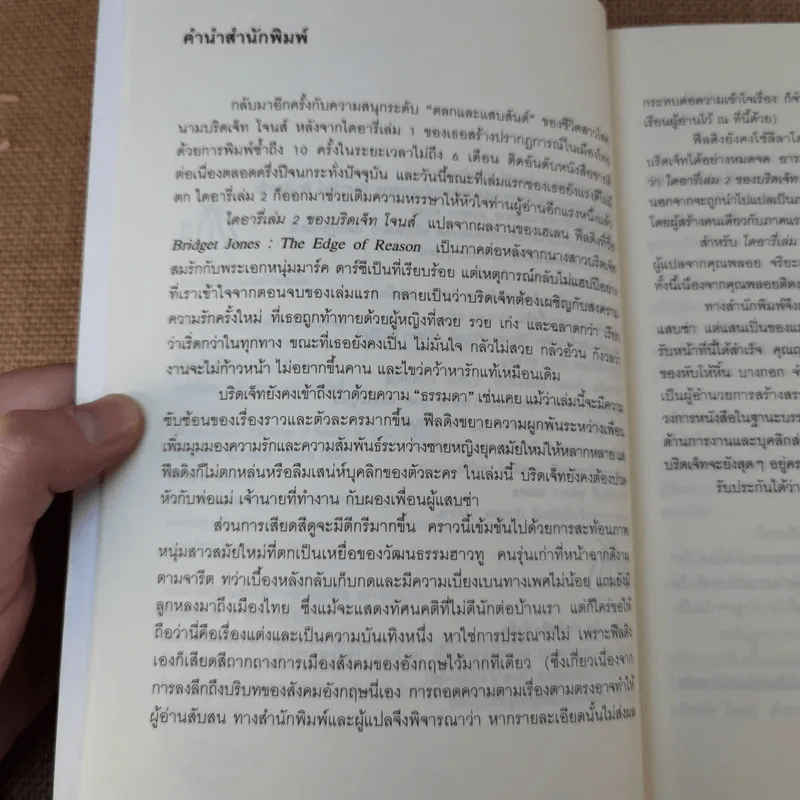 คำนำสำนักพิมพ์
กลับมาอีกครั้งกับความสนุกระดับ “ตลกและแสบสันต์” ของชีวิตสาวโสด
นามบริดเจ็ท โจนส์ หลังจากไดอารี่เล่ม 1 ของเธอสร้างปรากฏการณ์ในเมืองไทย
ด้วยการพิมพ์ซ้ำถึง 10 ครั้งในระยะเวลาไม่ถึง 6 เดือน ติดอันดับหนังสือขายดี
ต่อเนื่องตลอดครึ่งปีจนกระทั่งปัจจุบัน และวันนี้ขณะที่เล่มแรกของเธอยังแรงดีไม่มี
ตก ไดอารี่เล่ม 2 ก็ออกมาช่วยเติมความหรรษาให้หัวใจท่านผู้อ่านอีกแรงหนึ่งแล้ว
ไดอารี่เล่ม 2 ของบริดเจ็ท โจนส์ แปลจากผลงานของเฮเลน ฟีลดิงที่ชื่อ
Bridget Jones : The Edge of Reason เป็นภาคต่อหลังจากนางสาวบริดเจ็ท
สมรักกับพระเอกหนุ่มมาร์ค ดาร์ซีเป็นที่เรียบร้อย แต่เหตุการณ์กลับไม่แฮปปี้อย่าง
ที่เราเข้าใจจากตอนจบของเล่มแรก กลายเป็นว่าบริดเจ็ทต้องเผชิญกับสงคราม
ความรักครั้งใหม่ ที่เธอถูกท้าทายด้วยผู้หญิงที่สวย รวย เก่ง และฉลาดกว่า เรียก
ว่าเริ่ดกว่าในทุกทาง ขณะที่เธอยังคงเปิ่น ไม่มั่นใจ กลัวไม่สวย กลัวอ้วน กังวลว่า
งานจะไม่ก้าวหน้า ไม่อยากขึ้นคาน และไขว่คว้าหารักแท้เหมือนเดิม
บริดเจ็ทยังคงเข้าถึงเราด้วยความ “ธรรมดา” เช่นเคย แม้ว่าเล่มนี้จะมีความ
ซับซ้อนของเรื่องราวและตัวละครมากขึ้น ฟีลดิงขยายความผูกพันระหว่างเพื่อน
เพิ่มมุมมองความรักและความสัมพันธ์ระหว่างชายหญิงยุคสมัยใหม่ให้หลากหลาย แต่
ฟีลดิงก็ไม่ตกหล่นหรือลืมเสน่ห์บุคลิกของตัวละคร ในเล่มนี้ บริดเจ็ทยังคงต้องปวด
หัวกับพ่อแม่ เจ้านายที่ทำงาน กับผองเพื่อนผู้แสบซ่า
ส่วนการเสียดสีดูจะมีดีกรีมากขึ้น คราวนี้เข้มข้นไปด้วยการสะท้อนภาพ
หนุ่มสาวสมัยใหม่ที่ตกเป็นเหยื่อของวัฒนธรรมฮาวทู คนรุ่นเก่าที่หน้าฉากดีงาม
ตามจารีต ทว่าเบื้องหลังกลับเก็บกดและมีความเบี่ยงเบนทางเพศไม่น้อย แถมยังมี
ลูกหลงมาถึงเมืองไทย ซึ่งแม้จะแสดงทัศนคติที่ไม่ดีนักต่อบ้านเรา แต่ก็ใคร่ขอให้
ถือว่านี่คือเรื่องแต่งและเป็นความบันเทิงหนึ่ง หาใช่การประณามไม่ เพราะฟีลดิง
เองก็เสียดสีถากถางการเมืองสังคมของอังกฤษไว้มากทีเดียว (ซึ่งเกี่ยวเนื่องจาก
การลงลึกถึงบริบทของสังคมอังกฤษนี่เอง การถอดความตามเรื่องตามตรงอาจทำให้
ผู้อ่านสับสน ทางสำนักพิมพ์และผู้แปลจึงพิจารณาว่า หากรายละเอียดนั้นไม่ส่งผล
กระทบต่อความเข้าใจเรื่อง ก็จั
เรียนผู้อ่านไว้ ณ ที่นี้ด้วย)
ฟีลดิงยังคงใช้ลีลาไ
บริดเจ็ทได้อย่างหมดจด อาร
ว่า ไดอารี่เล่ม 2 ของบริดเจ็ท
นอกจากจะถูกนำไปแปลเป็นภา
โดยผู้สร้างคนเดียวกับภาคแร
สำหรับ ไดอารี่เล่ม
ผู้แปลจากคุณพลอย จริยะเ
ทั้งนี้เนื่องจากคุณพลอยติดง
ทางสำนักพิมพ์จึง
แสบซ่า แต่แสนเป็นของแม่
รับหน้าที่นี้ได้สำเร็จ คุณญ
ของหับให้หิ้น บางกอก จั
เป็นผู้อำนวยการสร้างสรร
วงการหนังสือในฐานะบรร
ด้านการงานและบุคลิกส่
บริดเจ็ทจะยังสุด ๆ อยู่คร
รับประกันได้ว่า